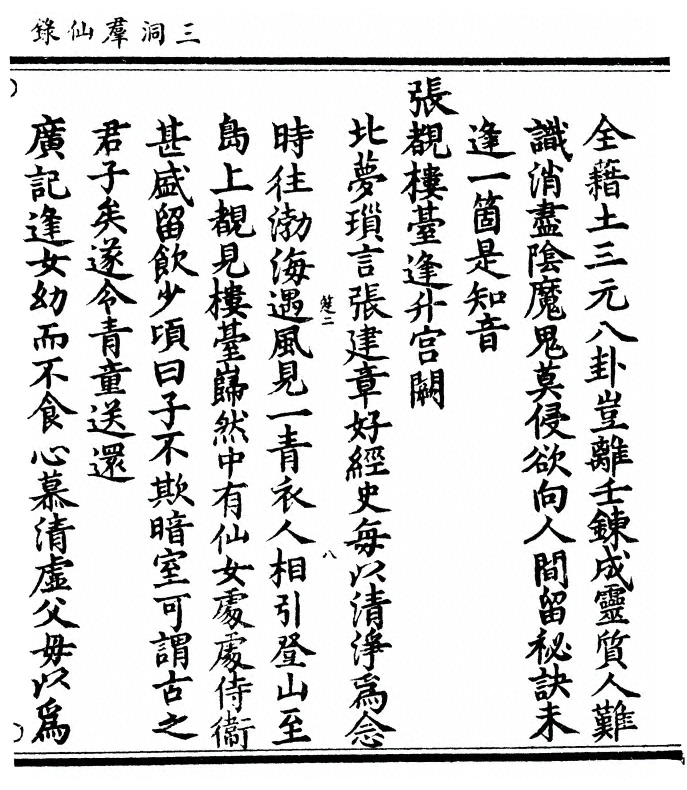 三洞羣仙錄
全藉土三元八卦豈離壬鍊成靈質人難
識消盡陰魔鬼莫侵欲向人間留秘訣未
逢一箇是知音
張覩樓臺逢升宮闕
北夢瑣言張建章好經史每以清淨爲念
時往渤海遇風見一青衣人相引登山至
楚二
八
島上覩見樓臺巋然中有仙女處處侍衞
甚盛留飮少頃曰子不欺暗室可謂古之
君子矣遂令青童送還
廣記逢女幼而不食心慕清虛父毋以爲